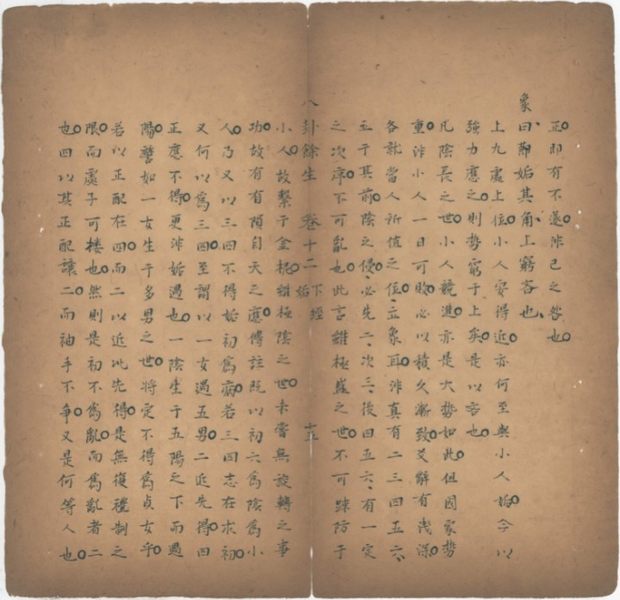 正即有不遂非已之咎也
象曰姤其角上窮吝也
上九處上位小人安得近亦何至與小人姤今以
強力應之則勢窮于上矣是以吝也
凡陰長之世小人競進亦是大勢如此但因家勢
重非小人一日可敗必以積久漸致爻辭有淺深
各就當人所值之位立象耳非真有二三四五六
五于其前陰之侵必先二次三後四五六有一定
之次序不可亂也此言雖極盛之世不可踈防于
八卦餘生 卷十二 下經 姤 十五
小人故繫于金柅雖極陰之世未嘗無旋轉之事
功故有有隕自天之應傳註既以初六爲陰爲小
人乃又以三四不得姤初爲病若三四志在求初
又何以爲三四至謂以一女遇五男二近先得四
正應不得更非姤遇也一陰生于五陽之下而遇
陽譬如一女生于多男之世將定不得爲貞女乎
若以正配在四而二以近此先得是無復禮制之
限而處子可摟也然則是初不爲亂而爲亂者二
也四以其正配讓二而袖手不爭又是何等人也